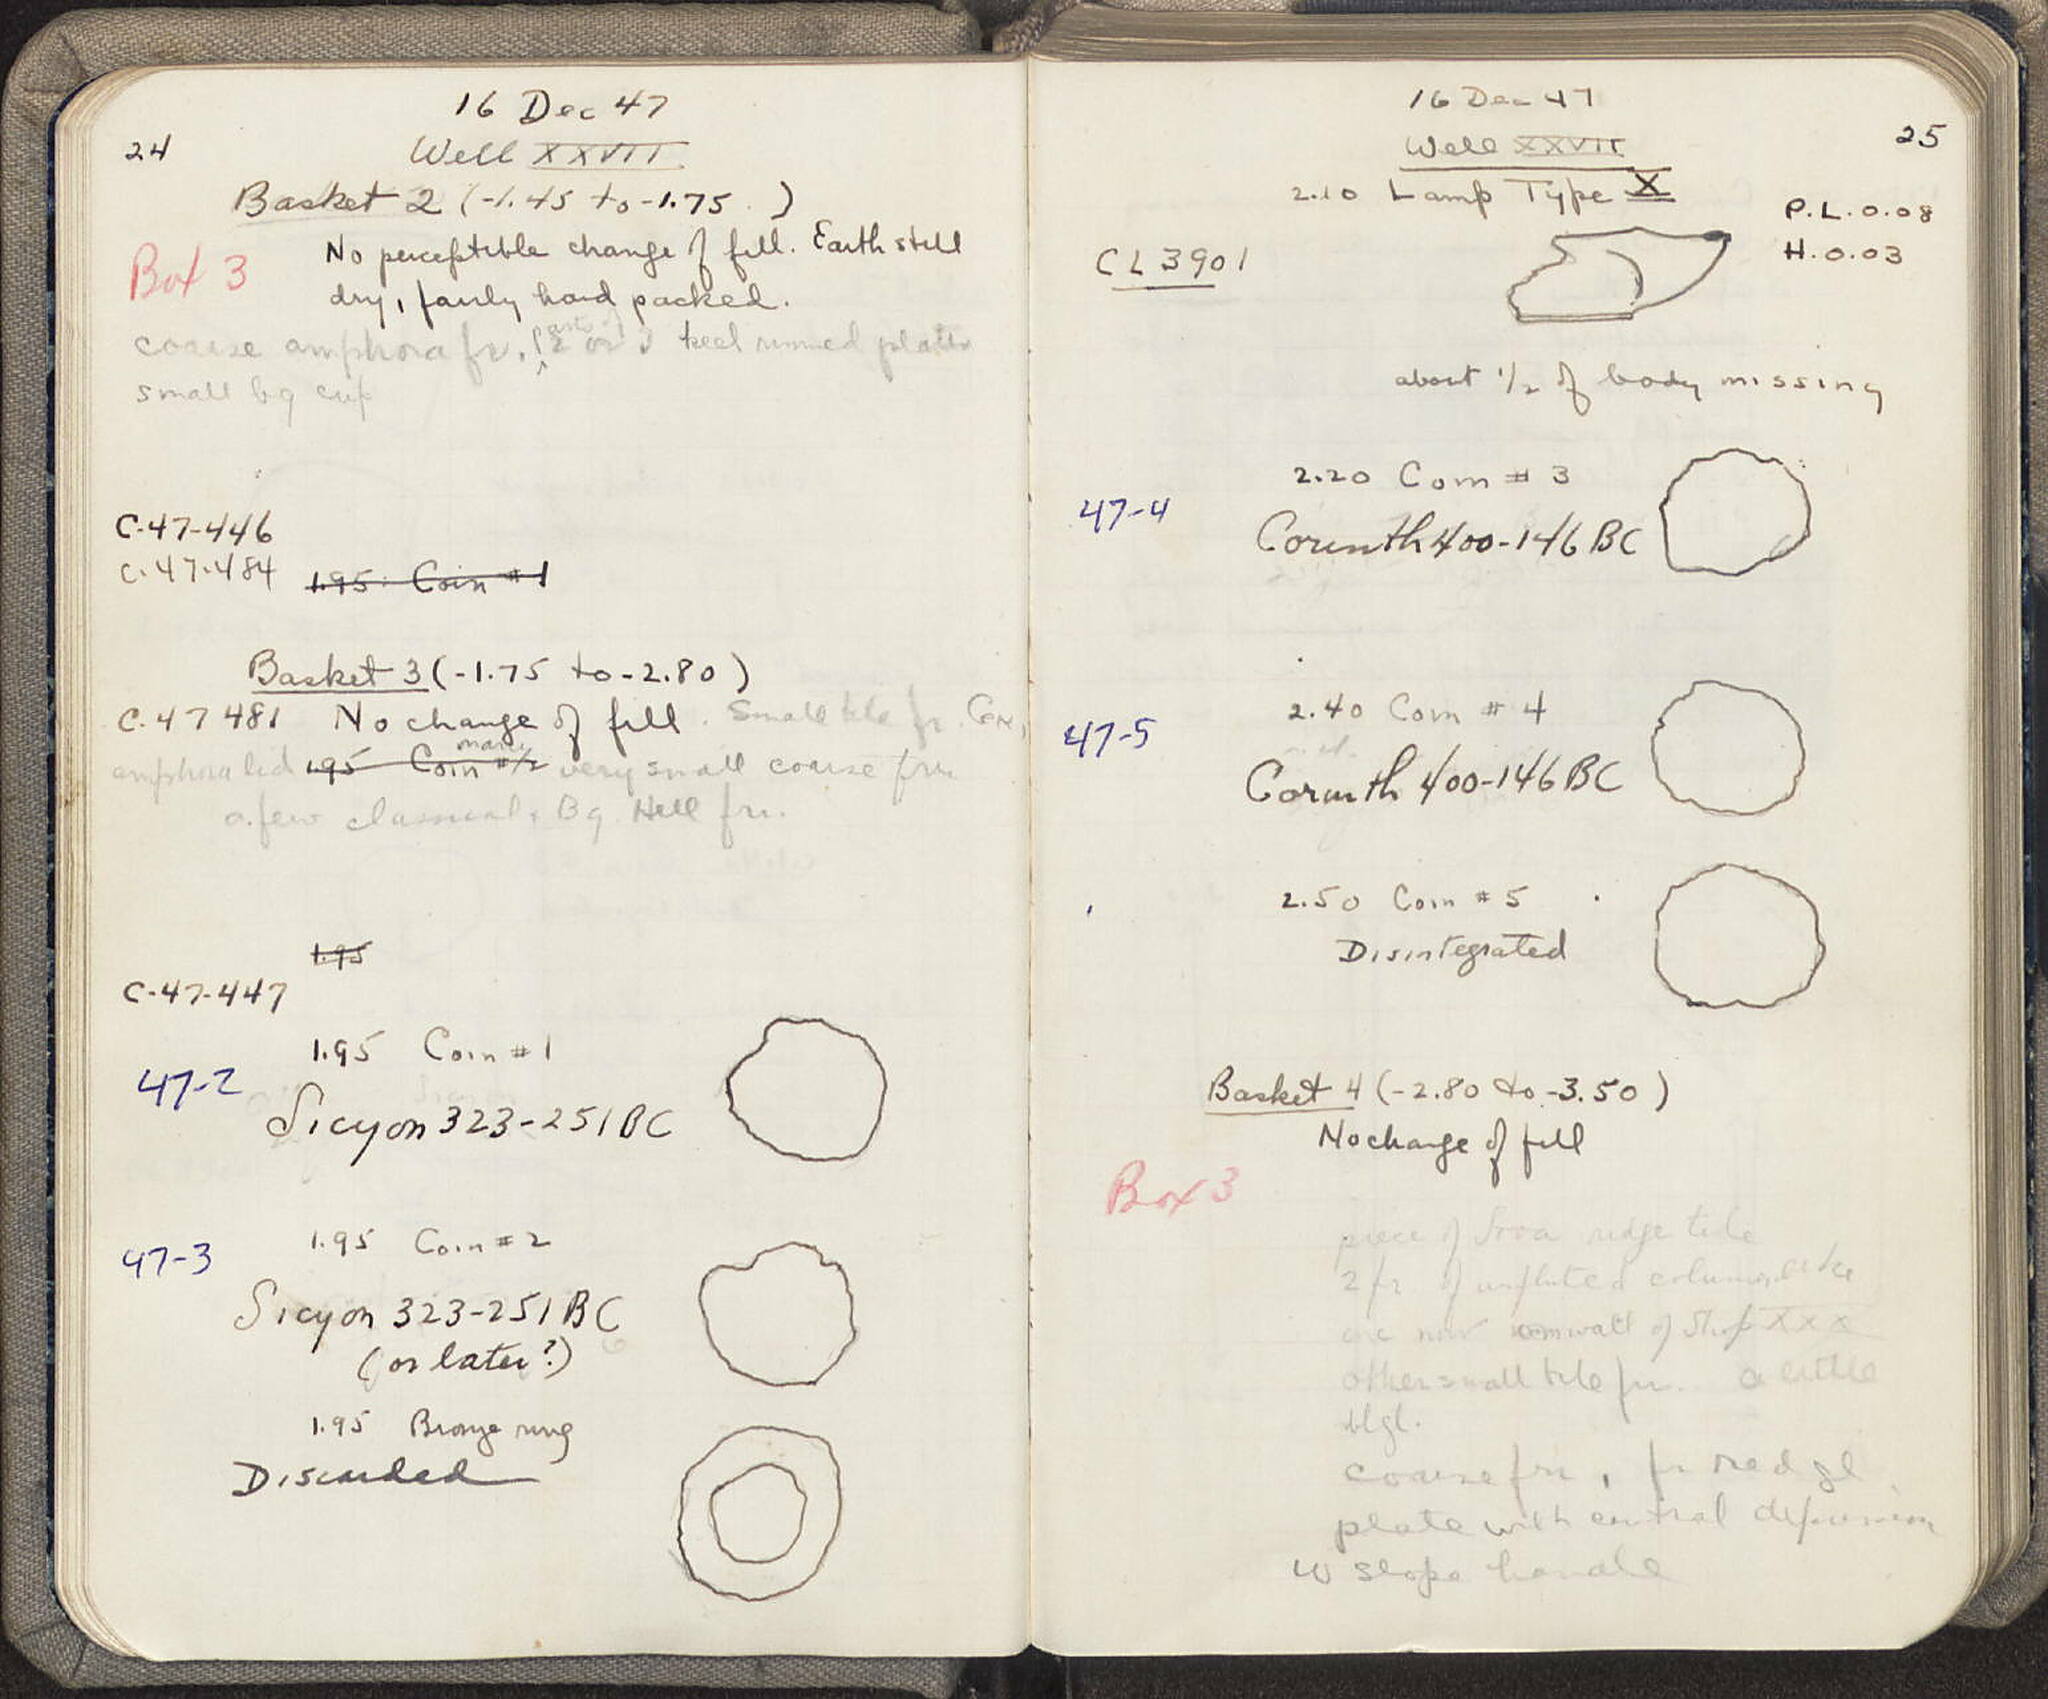 24
16 Dec 47
Well XXVII
Basket 2 (-1.45 to -1.75 )
Box 3
No perceptible change of fill. Earth still
dry, fairly hard packed.
coarse amphora fr. parts of 2 or 3 keel rimmed plates
small bg cup
C-47-446
C-47-484
1.95 Coin #1
Basket 3 (-1.75 to -2.80)
C-47 481 No change of fill. Small tile fr.
amphora lid 1.95 Coin #2 many very small coarse frr.
a few classical, Bg Hell frr.
1.95
C-47-447
1.95 Coin #1
47-2
Sicyon 323-251 BC
1.95 Coin #2
47-3
Sicyon 323-251 BC
(or later?)
1.95 Bronze ring
Discarded
16 Dec 47
25
Well XXVII
2.10 Lamp Type X
P.L. 0.08
H. 0.03
CL 3901
about 1/2 of body missing
2.20 Coin #3
47-4
Corinth 400-146 BC
2.40 Coin #4
47-5
Corinth 400-146 BC
2.50 Coin #5
Disintegrated
Basket 4 (-2.80 to -3.50)
No change of fill
Box 3
piece of Stoa ridge tile
2 fr of unfluted column
wall of Shop XXX
other small tile frr. a little
blgl.
coarse frr, fr red gl
plate with central depression
w slope handle